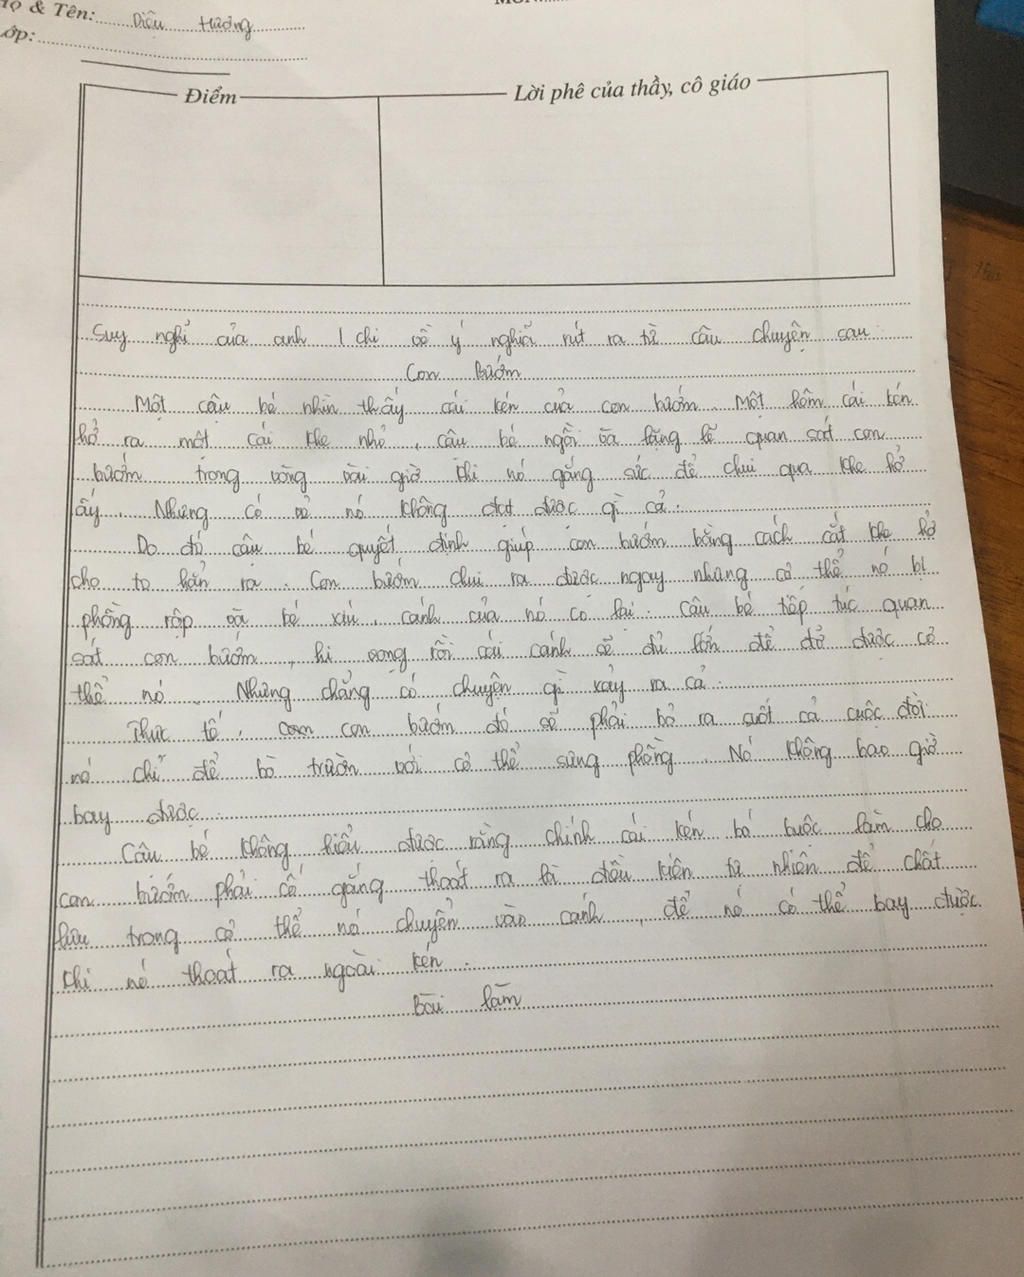 Họ & Tên: Diệu Hương
Lớp:
Điểm
Lời phê của thầy, cô giáo
Suy nghĩ của anh / chị về ý nghĩa rút ra từ câu chuyện sau:
Con Bướm
Một cậu bé nhìn thấy cái kén của con bướm. Một hôm cái kén
hở ra một cái khe nhỏ, cậu bé ngồi và lặng lẽ quan sát con
bướm trong vòng vài giờ khi nó gắng sức để chui qua khe hở
ấy. Nhưng có vẻ nó không đạt được gì cả.
Do đó cậu bé quyết định giúp con bướm bằng cách cắt khe hở
cho to hẳn ra. Con bướm chui ra được ngay nhưng cơ thể nó bị
phồng rộp và bé xíu, cánh của nó co lại. Cậu bé tiếp tục quan
sát con bướm, hi vọng rồi cái cánh sẽ đủ lớn để đỡ được cơ
thể nó. Nhưng chẳng có chuyện gì xảy ra cả.
Thực tế, con bướm đó sẽ phải bỏ ra suốt cả cuộc đời
nó chỉ để bò trườn với cơ thể sưng phồng. Nó không bao giờ
bay được.
Cậu bé không hiểu được rằng chính cái kén bó buộc làm cho
con bướm phải cố gắng thoát ra là điều kiện tự nhiên để chất
lưu trong cơ thể nó chuyển vào cánh, để nó có thể bay được
khi nó thoát ra ngoài kén.
Bài làm